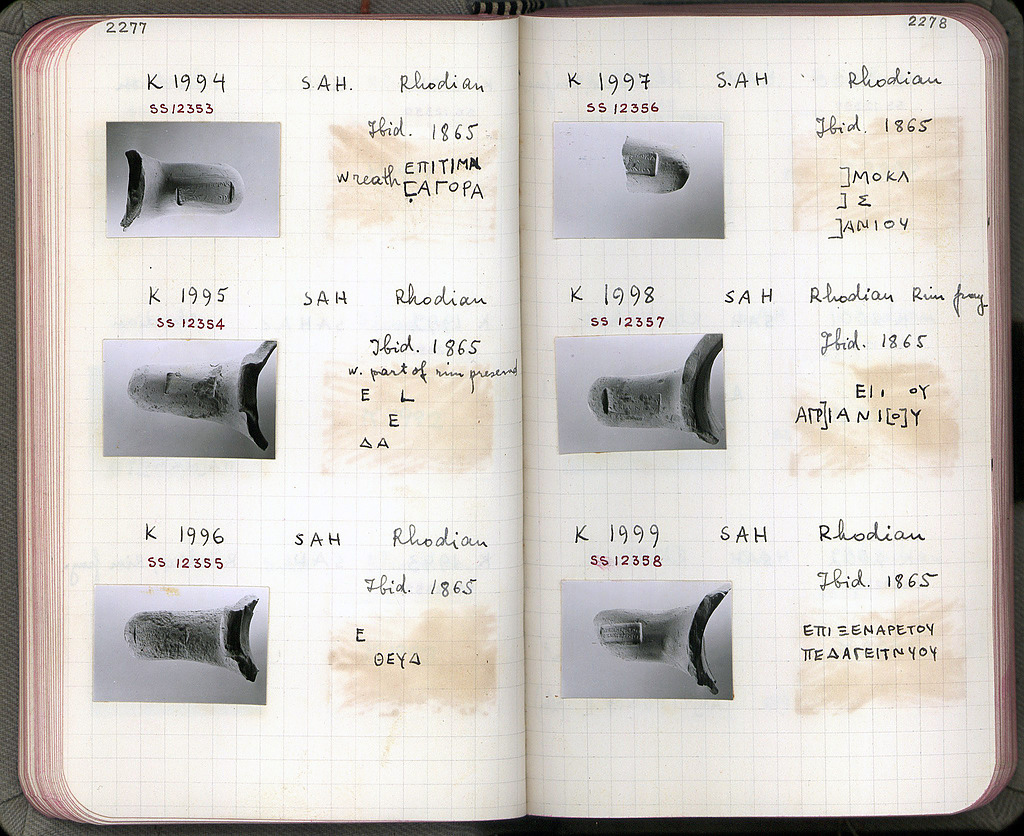 2277
K 1994 SAH. Rhodian
SS 12353
Ibid. 1865
wreath ΕΠΙΤΙΜΑ
ΣΑΓΟΡΑ
K 1995 SAH Rhodian
SS 12354
Ibid. 1865
w. part of rim preserved
Ε L
Ε
ΔΑ
K 1996 SAH Rhodian
SS 12355
Ibid. 1865
Ε
ΘΕΥΔ
2278
K 1997 S.AH Rhodian
SS 12356
Ibid. 1865
]ΜΟΚΛ
] Σ
]ΑΝΙΟΥ
K 1998 SAH Rhodian Rim frag
SS 12357
Ibid. 1865
ΕΠΙ ΟΥ
ΑΓΡ]ΙΑΝΙ[Ο]Υ
K 1999 SAH Rhodian
SS 12358
Ibid. 1865
ΕΠΙ ΞΕΝΑΡΕΤΟΥ
ΠΕΔΑΓΕΙΤΝΥΟΥ